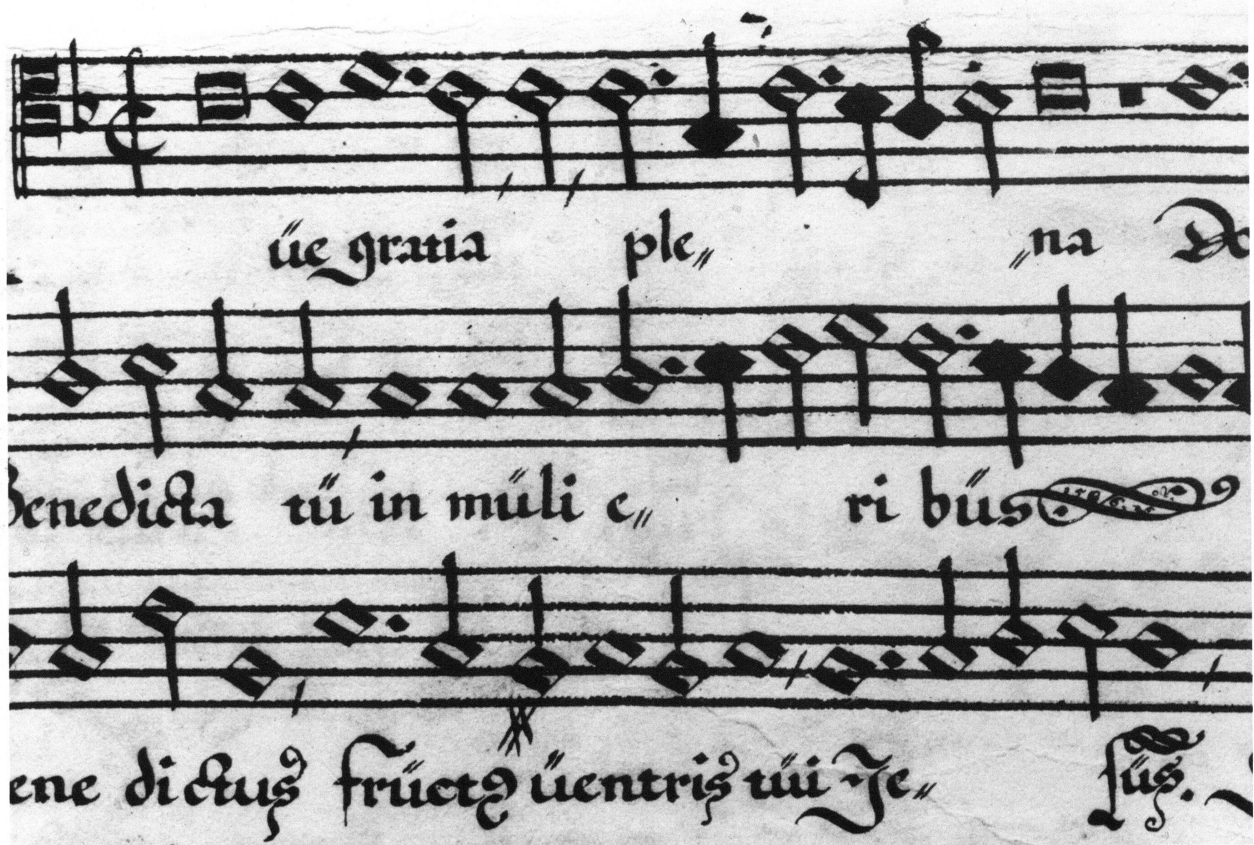 üe gratia ple〃 〃na Do
Benedicta tü in müli e〃 ri büs
ene dictus früctꝰ üentris tüi Je〃 süs.